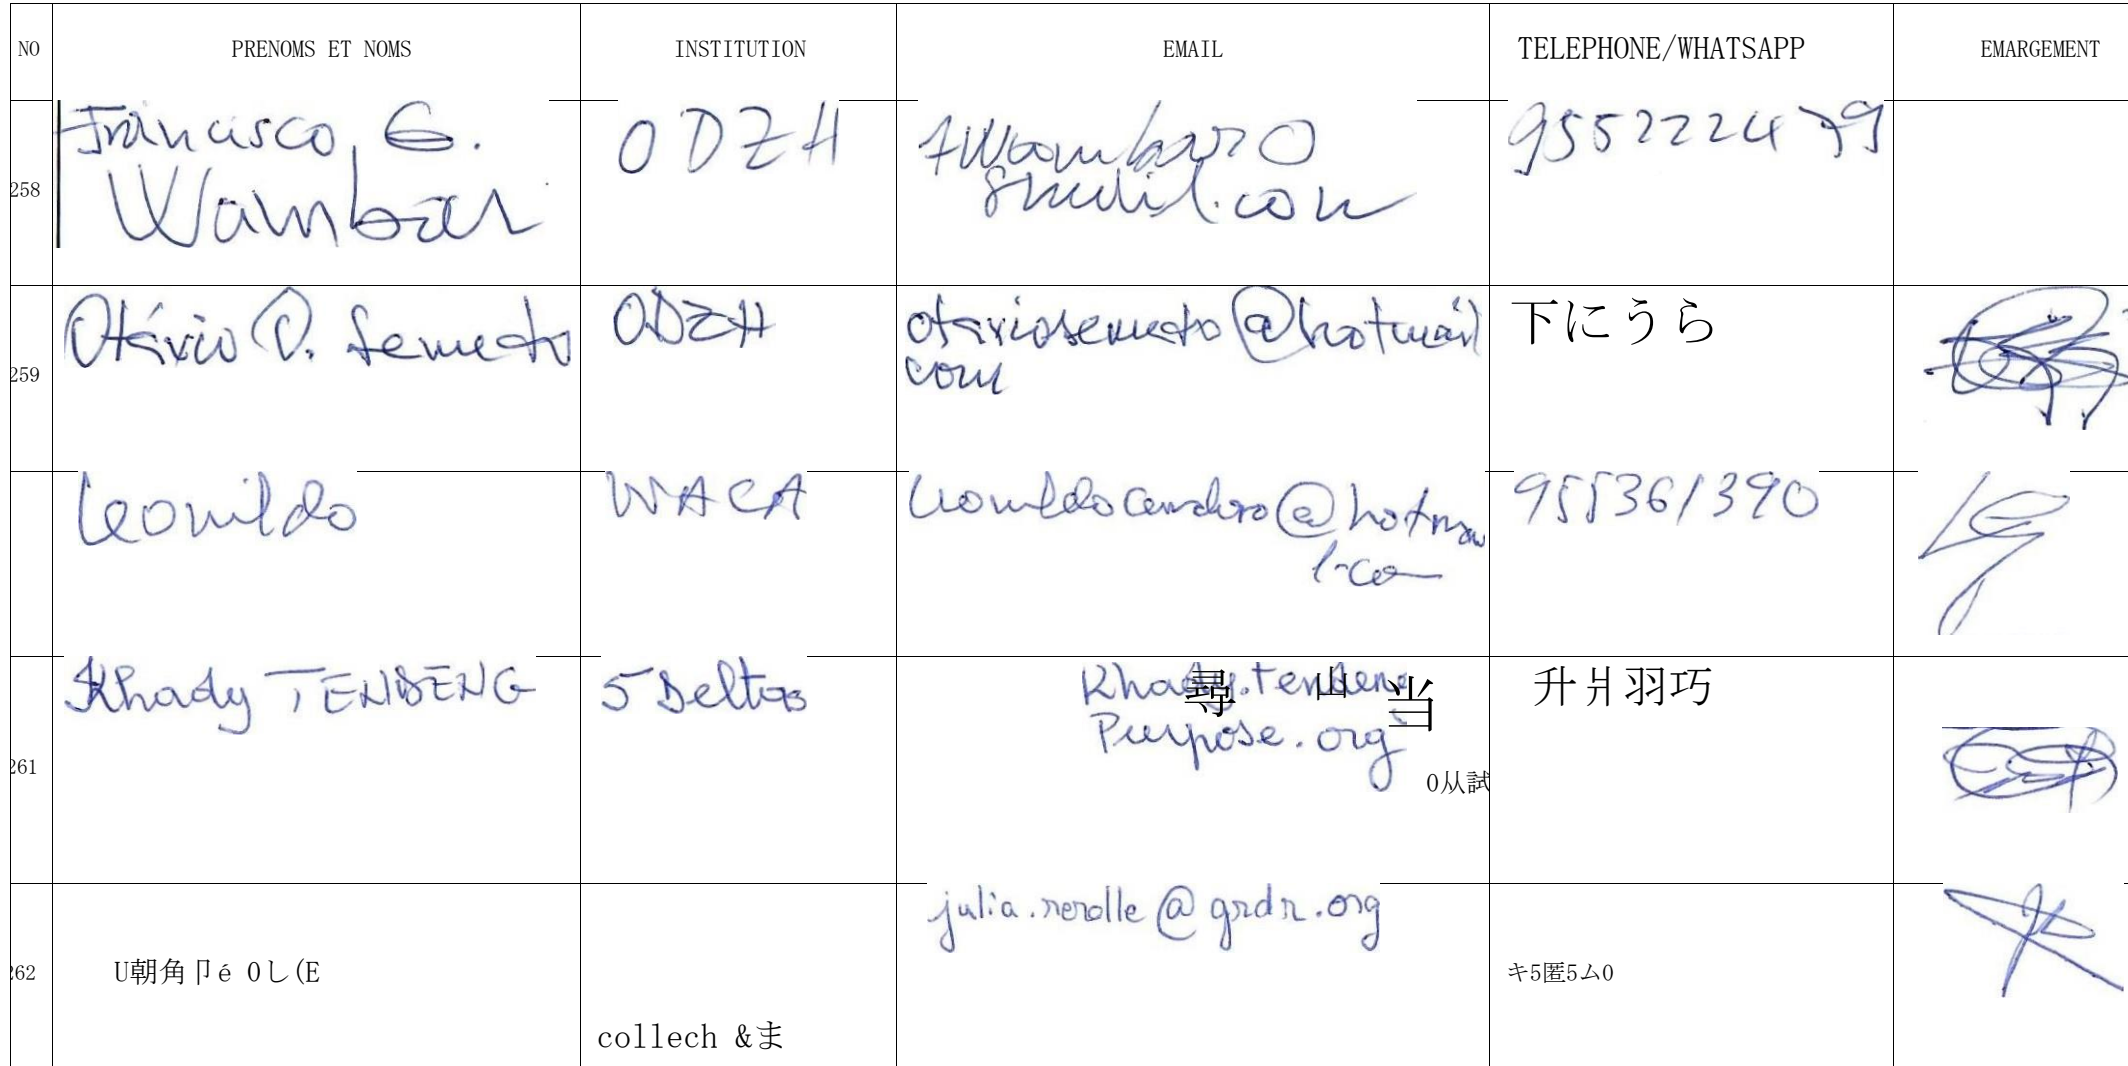 NO PRENOMS ET NOMS INSTITUTION EMAIL TELEPHONE/WHATSAPP EMARGEMENT
258
Francisco G.
Wambar
ODZH
fwambar@
gmail.com
955222479
259
Otávio O. Semedo
ODZH
otaviosemedo@hotmail
com
下にうら
Leonildo
WACA
@hotmai
l.com
955361390
261
Khady TENDENG
5 Deltas
Khady.tendeng
Purpose.org
尋 山 当
0从試
升爿羽巧
262
U朝角卩é 0し(E
collech &ま
julia.nerolle@grdr.org
キ5匿5ム0